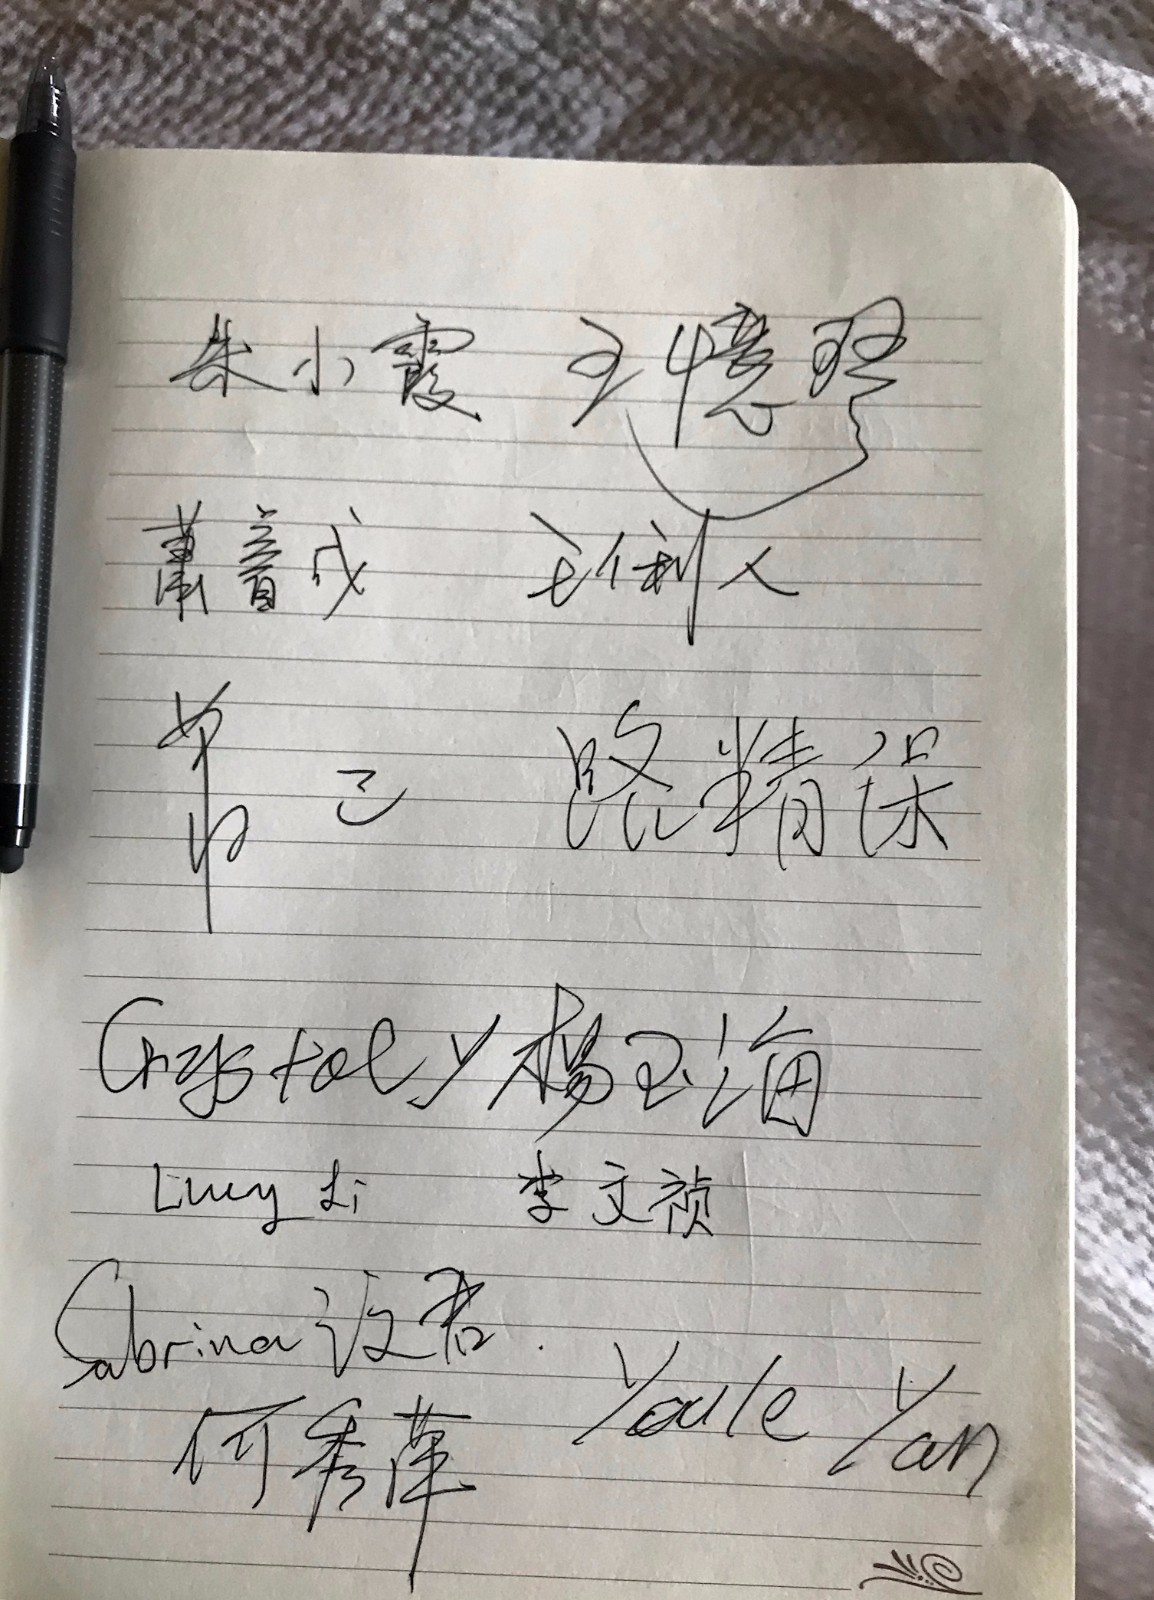 朱小霞 王憶琴
蕭音成 利人
路精保
Crystal Y 杨玉海
Lucy Li 李文祯
Sabrina 君
何秀萍 Youle Yan